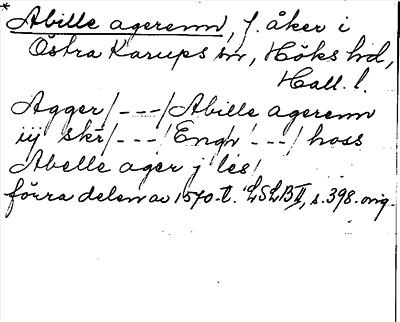 * Abille agerenn, f. åker i
Östra Karups sn, Höks hd,
Hall. l.
Agger/---/Abille agerenn
iij skr/---/Engh/---/hoss
Abelle ager j les/
förra delen av 1570-t. LSLB II, s. 398. orig.